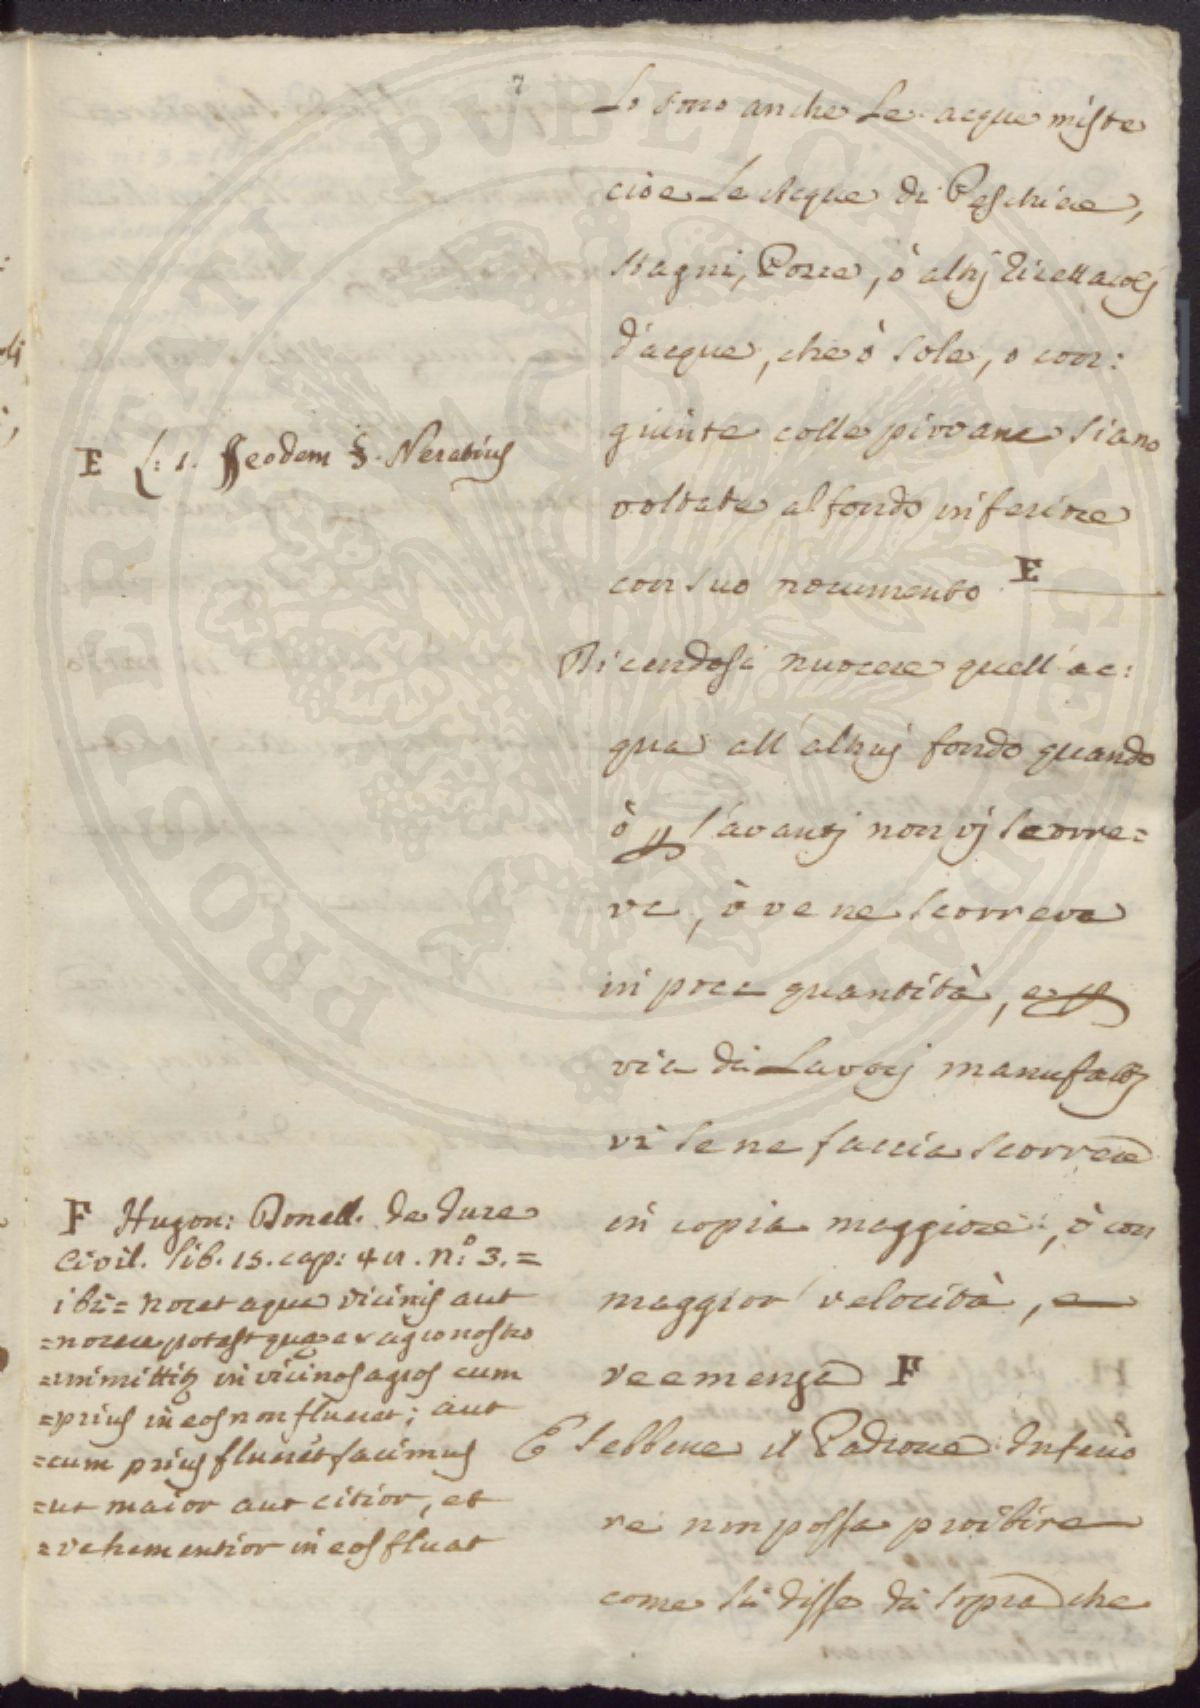 7
Lo sono anche le acque miste
cioè le Acque di Peschiae,
stagni, Pozze, ò altrj Ricettacolj
d'acque, che ò sole, o con:
giunte colle piovane siano
voltate al fondo inferiore
con suo nocumento E
Dicendosi nuocere quell'ac:
qua all'altruj fondo quando
ò p l'avantj non vj scorre=
va, ò ve ne scorreva
in poca quantità, e p
via di Lavorj manufattj
vi se ne faccia scorrere
in copia maggiore, ò con
maggior velocità, e
veemenza F
E sebbene il Padrone Inferio
re non possa proibire
come si disse di sopra che
E L: 1. §. Neratius
F Hugon: Donell. de Iure
Civil. lib. 15. cap: 44. n.º 3. =
ibi= nocet aqua vicinis aut
=nocere potest quae ex agro nostro
=immittitur in vicinos agros cum
=prius in eos non flueret; aut
=cum prius flueret facimus
=ut maior aut citior, et
=vehementior in eos fluat
PROSPERITATI PUBLICAE AUGENDAE